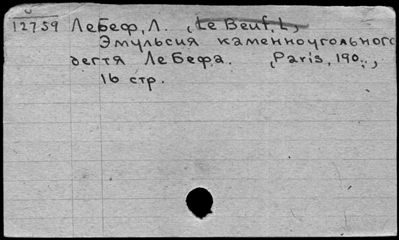 12759 ЛеБеф, Л. , Le Beuf, L,
Эмульсия каменноугольного
дегтя Ле Бефа. , Paris, 190..,
16 стр.